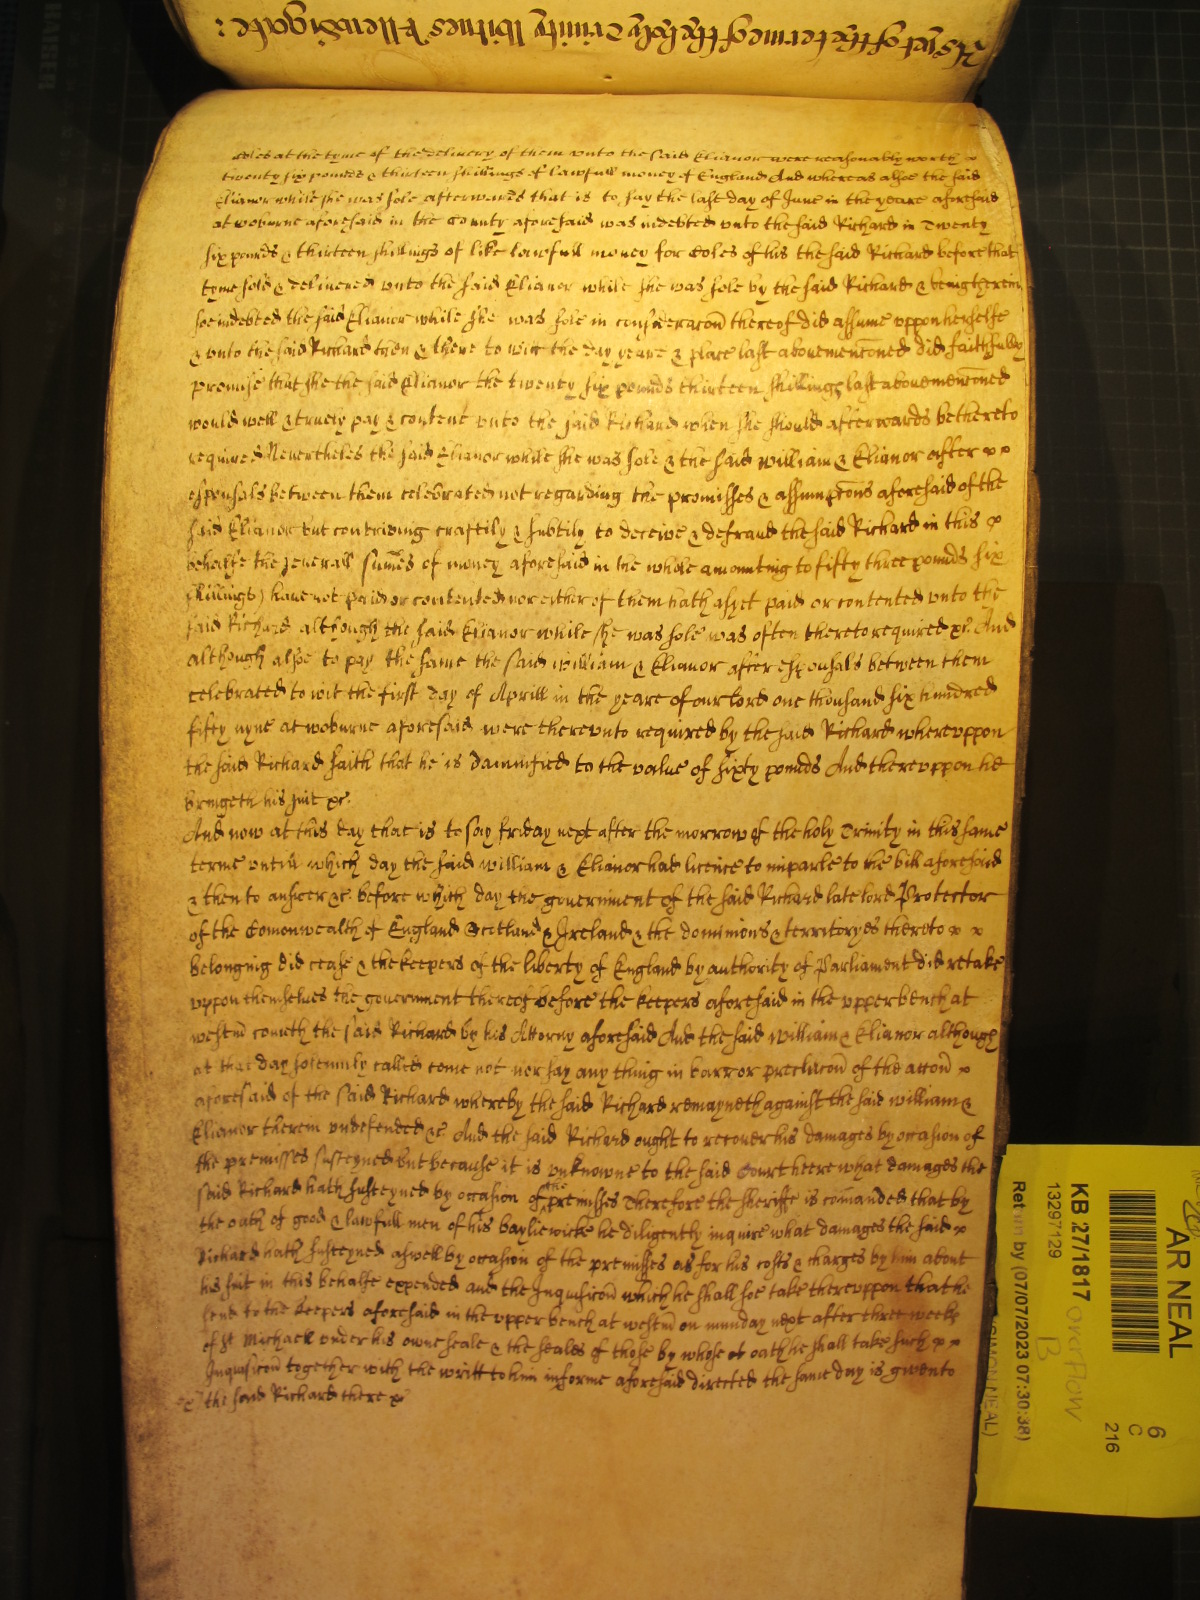 As yet of the terme of the holy Trinity Witnes
Coles at the tyme of the delivery of them unto the said Elianor were reasonably worth x
twenty six pounds & thirteen shillings of lawfull money of England And whereas alsoe the said
Elianor while she was sole afterwards that is to say the last day of June in the yeare aforesaid
at woburne aforesaid in the County aforesaid was indebted unto the said Richard in Twenty
six pounds & thirteen shillings of like lawfull money for Coles of his the said Richard before that
tyme sold & delivered unto the said Elianor while she was sole by the said Richard & being therein
soe indebted the said Elianor while she was sole in consideracon thereof did assume uppon herselfe
& unto the said Richard then & there to witt the day yeare & place last abovemenconed did faithfully
promise that she the said Elianor the twenty six pounds thirteen shillings last abovemenconed
would well & truely pay & content unto the said Richard when she should afterwards be thereto
required Nevertheles the said Elianor while she was sole & the said William & Elianor after x x
espousals between them celebrated not regarding the promisses & assumpcons aforesaid of the
said Elianor but contriving craftily & subtily to deceive & defraud the said Richard in this x
behalfe the severall sumes of money aforesaid in the whole amounting to fifty three pounds six
shillings) have not paid or contented nor either of them hath as yet paid or contented unto the
said Richard although the said Elianor while she was sole was often thereto required &c. And
although alsoe to pay the same the said William & Elianor after espousals between them
celebrated to wit the first day of Aprill in the yeare of our lord one thousand six hundred
fifty nyne at woburne aforesaid were thereunto required by the said Richard whereuppon
the said Richard saith that he is damnified to the value of sixty pounds And thereuppon he
bringeth his suit &c.
And now at this day that is to say friday next after the morrow of the holy Trinity in this same
terme untill which day the said William & Elianor had licence to imparle to the bill aforesaid
& then to answer &c. before which day the government of the said Richard late lord Protector
of the Comonwealth of England Scotland & Ireland & the dominions & territoryes thereto x x
belonging did cease & the keepers of the liberty of England by authority of Parliament did retake
uppon themselves the government thereof before the keepers aforesaid in the upper bench at
westm cometh the said Richard by his Attorny aforesaid And the said William & Elianor although
at that day solemnly called come not nor say any thing in barr or preclucon of the accon x
aforesaid of the said Richard whereby the said Richard remayneth against the said William &
Elianor therein undefended &c. And the said Richard ought to recover his damages by occasion of
the premisses susteyned but because it is unknowne to the said Court heere what damages the
said Richard hath susteyned by occasion of the premisses Therefore the sheriffe is comanded that by
the oath of good & lawfull men of his bayliewicke he diligently inquire what damages the said x
Richard hath susteyned aswell by occasion of the premisses as for his costs & charges by him about
his suit in this behalfe expended and the Inquisicon which he shall soe take thereuppon that he
send to the keepers aforesaid in the upper bench at westm on munday next after three weeks
of St Michaell under his owne seale & the seales of those by whose oath he shall take such x x
Inquisicon together with the writt to him in forme aforesaid directed the same day is given to
the said Richard there &c
AR NEAL
KB 27/1817
13297129
Return by (07/07/2023 07:30:38)
(SIMON NEAL)
overflow
B
6
C
216